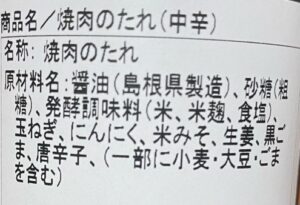 商品名／焼肉のたれ(中辛)
名称: 焼肉のたれ
原材料名:醤油(島根県製造)、砂糖(粗
糖)、発酵調味料(米、米麹、食塩)、
玉ねぎ、にんにく、米みそ、生姜、黒ご
ま、唐辛子、(一部に小麦・大豆・ごま
を含む)